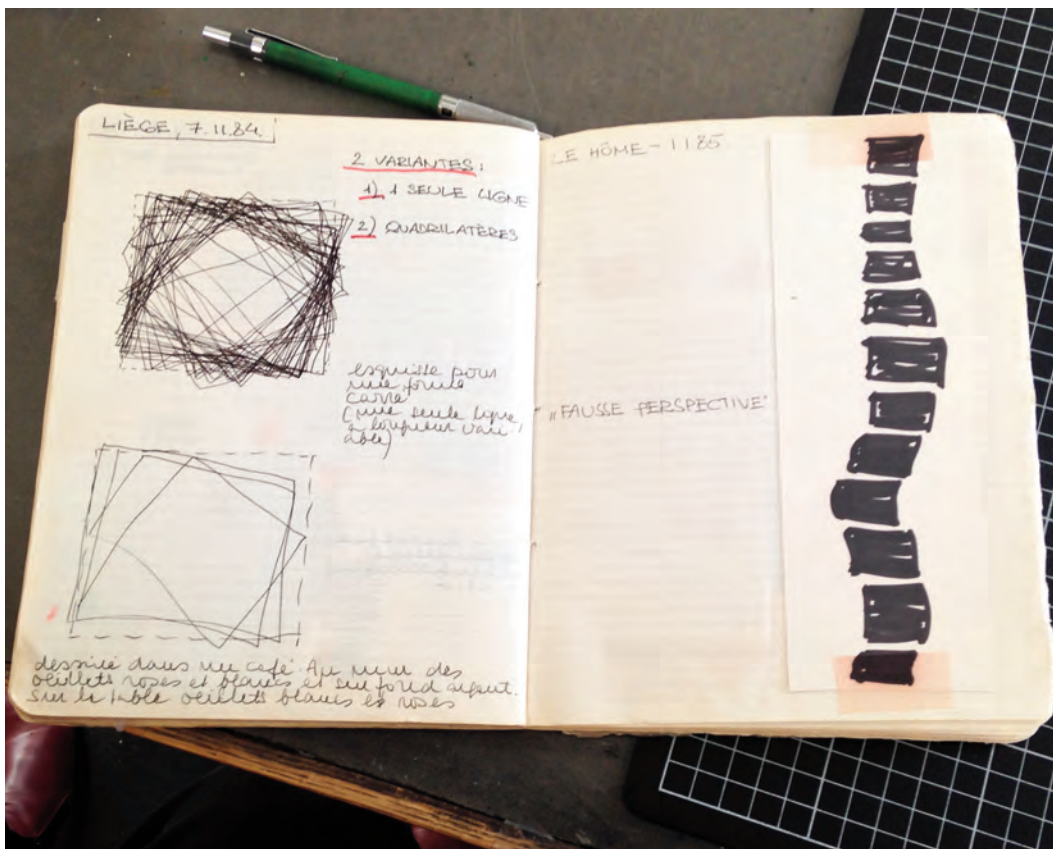 LIÈGE, 7.11.84.
2 VARIANTES:
1) 1 SEULE LIGNE
2) QUADRILATÈRES
esquisse pour
une forme
carré
(une seule ligne,
à longueur vari
able)
dessiné dans un café. Au mur des
oeillets roses et blancs et sur fond argent.
Sur la table oeillets blancs et roses
LE HÔME – 1 1 85
„FAUSSE PERSPECTIVE"